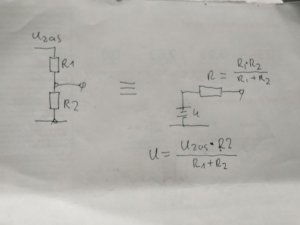 Uzas
R1
R2
≡
R = R1·R2 / R1+R2
U
U = Uzas · R2 / R1+R2